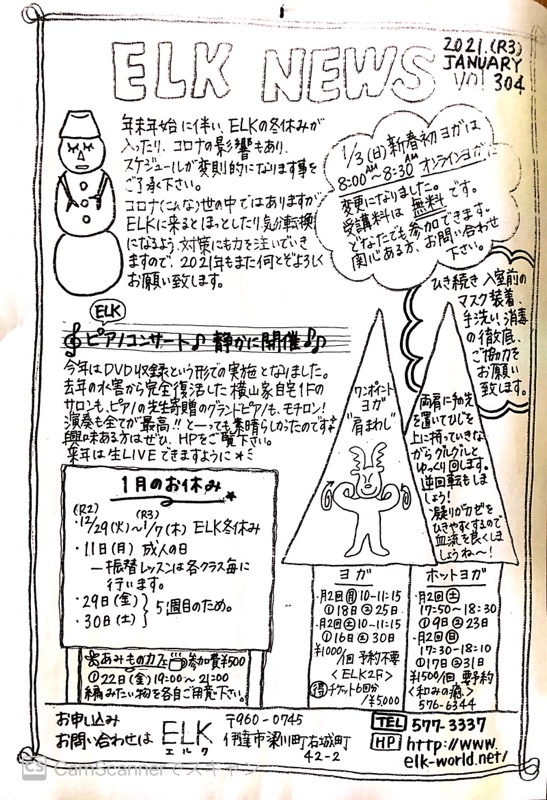 ELK NEWS
2021.(R3)
JANUARY
Vol 304
年末年始に伴い、ELKの冬休みが
入ったり、コロナの影響もあり、
スケジュールが変則的になります事を
ご了承下さい。
コロナ(こんな)世の中ではありますが
ELKに来るとほっとしたり、気分転換
になるよう、対策にも力を注いでいき
ますので、2021年もまた何とぞよろしく
お願い致します。
1/3(日)新春初ヨガは
8:00AM〜8:30AMオンラインヨガに
変更になりました。
受講料は無料です。
どなたでも参加できます。
関心ある方、お問い合わせ
下さい。
ひき続き入室前の
マスク装着、
手洗い、消毒
の徹底、
ご協力を
お願い
致します。
ELK
ピアノコンサート♪ 静かに開催♪♪
今年はDVD収録という形での実施となりました。
去年の水害から完全復活した横山家自宅1Fの
サロンも、ピアノの先生寄贈のグランドピアノも、モチロン!
演奏も全てが最高!!とーっても素晴らしかったのです☆
興味ある方はぜひ、HPをご覧下さい。
来年は生LIVEできますように☆ミ
1月のお休み
(R2) (R3)
・12/29(火)〜1/7(木) ELK冬休み
・11日(月) 成人の日
―振替レッスンは各クラス毎に
行います。
・29日(金)
・30日(土) } 5週目のため。
あみものカフェ 参加費¥500
①22日(金)19:00〜21:00
編みたい物を各自ご用意下さい。
ワンポイント
ヨガ
"肩まわし"
両肩に手の先
を置いてひじを
上に持っていきな
がらグルグルと
ゆっくり回します。
逆回転もしま
しょう!
凝りがカゼを
ひきやすくするので
血流を良くしま
しょうね〜!
ヨガ
・月2回(月)10-11:15
①18日②25日
・月2回(土)10-11:15
①16日②30日
¥1000/1回 予約不要
<ELK2F>
(得)チケット6回分
/¥5,000
ホットヨガ
・月2回(土)
17:50〜18:30
①9日②23日
・月2回(日)
17:30-18:10
①17日②31日
¥1500/1回 要予約
<和みの癒>
576-6344
お申し込み
お問い合わせは
ELK
エルク
〒960-0745
伊達市梁川町右城町
42-2
TEL 577-3337
HP http://www.
elk-world.net/
CS CamScannerでスキャン